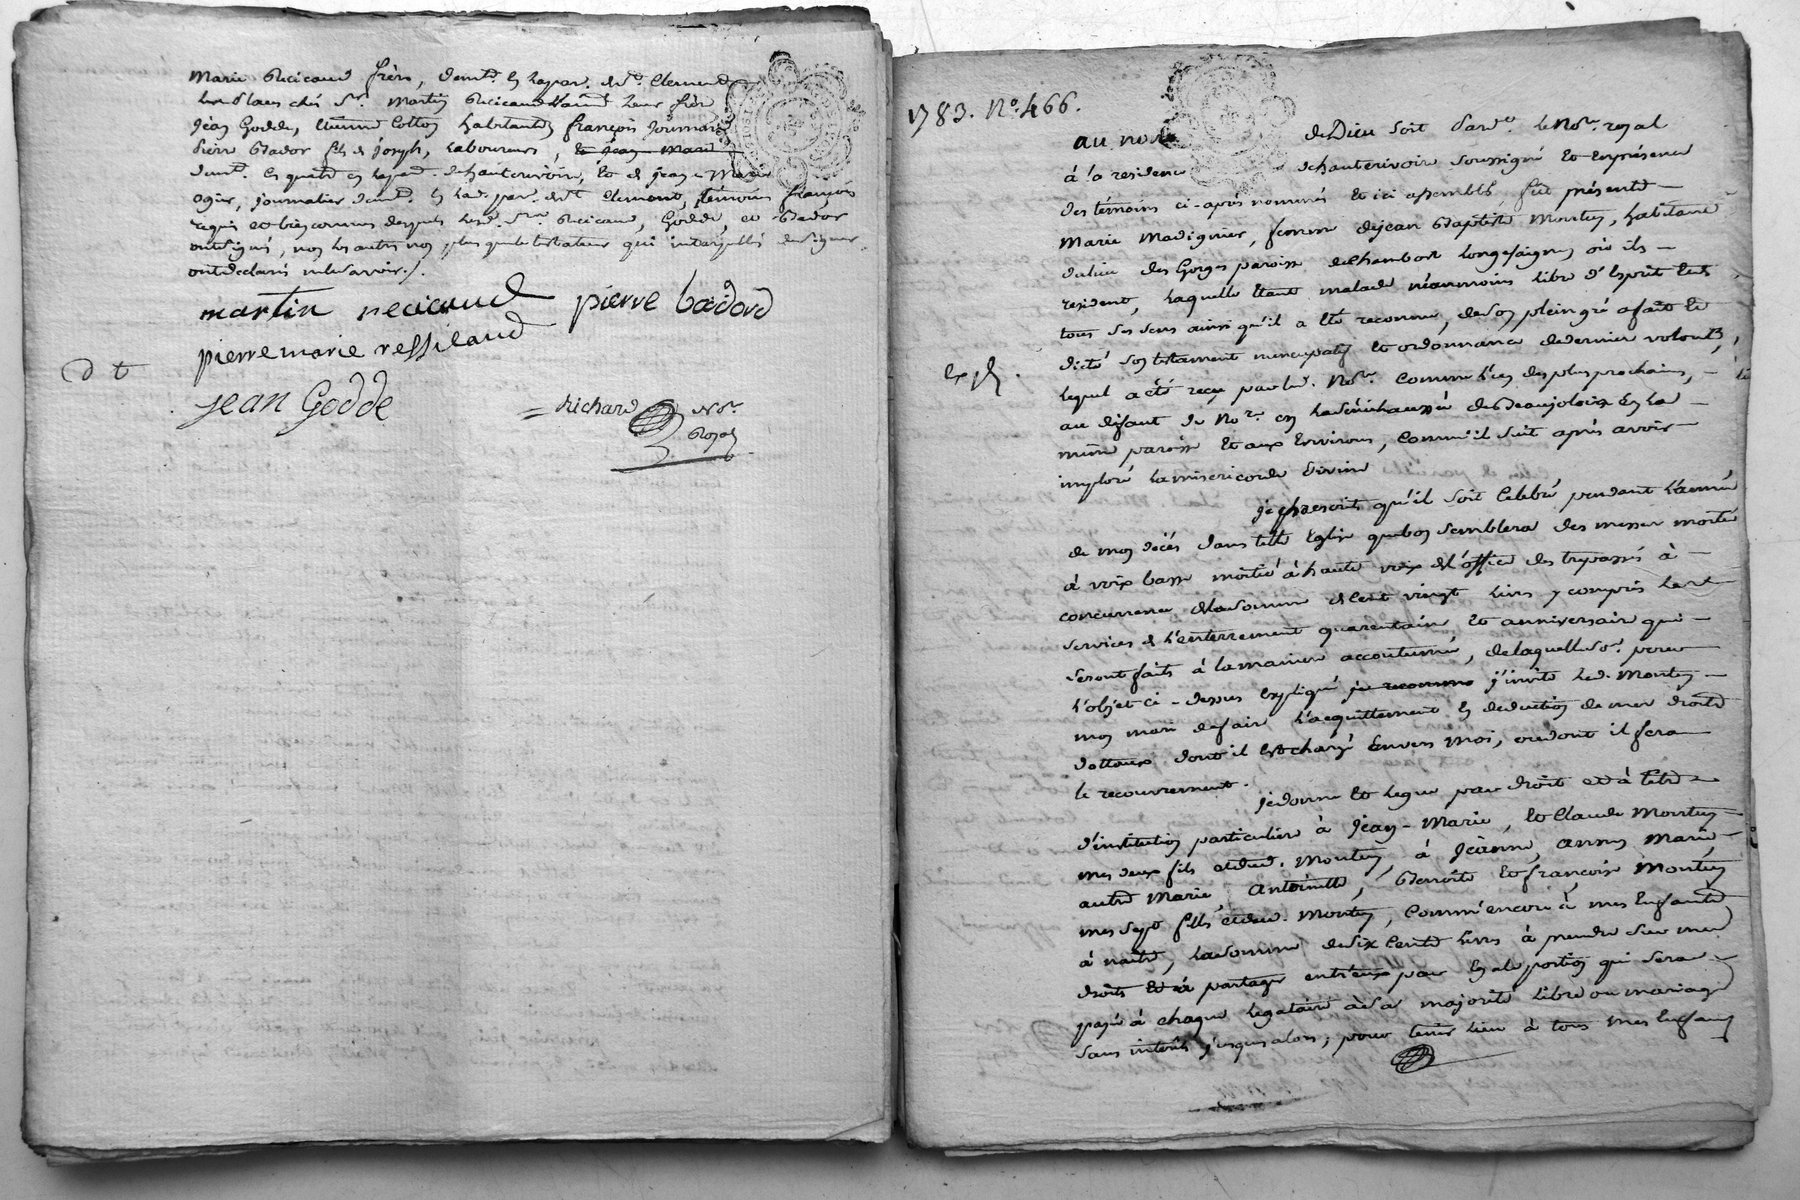 Marie Recicaud frère, demt. en la par. de St. Clement
les places chés Sr. Martin Recicaud Laîné leur frère
jean Godde, Etienne Cotton habitants françois journard
Pierre Bador fils de joseph, Laboureurs, et jean Marie
demt. en lad. de hauterivoire, et de jean Marie
ogier, journalier demt. en lad. par. de St. Clement, témoins françois
requis et bien connus desquels lesd. Srs. Recicaud, Godde, et Badord
ont signés, non les autres non plus que le testateur qui interpellés de signer
ont declarés ne le savoir./.
martin recicaud pierre badord
pierre marie ressicaud
d t
jean Godde
= Richard Nore.
Royal
1783. No. 466.
au nom de Dieu soit Pardt. le Nore. royal
à la residence de hauterivoire soussigné et en présence
des témoins ci-après nommés et ici assemblés, fut présente
Marie Madignier, femme de jean Baptiste Montey, habitant
du lieu des Gorges paroisse de Chambost Longessaigne où ils
resident, Laquelle étant malade néanmoins libre d'Esprit et de
tous ses sens ainsi qu'il a été reconnu, de son plein gré a fait et
dicté son testament nuncupatif et ordonnance de dernière volonté,
exp.
lequel a été reçu par led. Nore. comme l'un des plus prochains,
au défaut de Nore. en La Sénéchaussée de Beaujolois en La
même paroisse et aux Environs, comm'il suit après avoir
imploré La misericorde divine
je prescrits qu'il soit Celebré pendant L'année
de mon décés dans telle Eglise que bon semblera des messes moitié
à voix basse moitié à haute voix de l'office des trepassés à
concurrence de la somme de Cent vingt Livres y compris Les
services de L'enterrement quarentaine, et anniversaire qui
seront faits à la maniere accoutumée, de laquelle so. pour
L'objet ci-dessus Expliqué je recomma j'invite Led. Montey
mon mari de faire L'acquittement en deduction de mes droits
dottaux dont il est chargé Envers moi, ou dont il fera
le recouvrement.
je donne et legue par droit et à titre
d'institution particuliere à jean-Marie, et Claude Montey
mes deux fils et dud. Montey, à jeanne, anne, Marie,
autre Marie, antoinette, Benoite et françoise Montey
mes sept filles et dud. Montey, comm'encore à mes Enfants
à naitre, La somme de six Cents livres à prendre sur mes
droits et à partager entr'eux par Egale portion qui sera
payé à chaque legataire à sa majorité Libre ou mariage
sans intérêts jusqu'alors, pour tenir lieu à tous mes Enfans